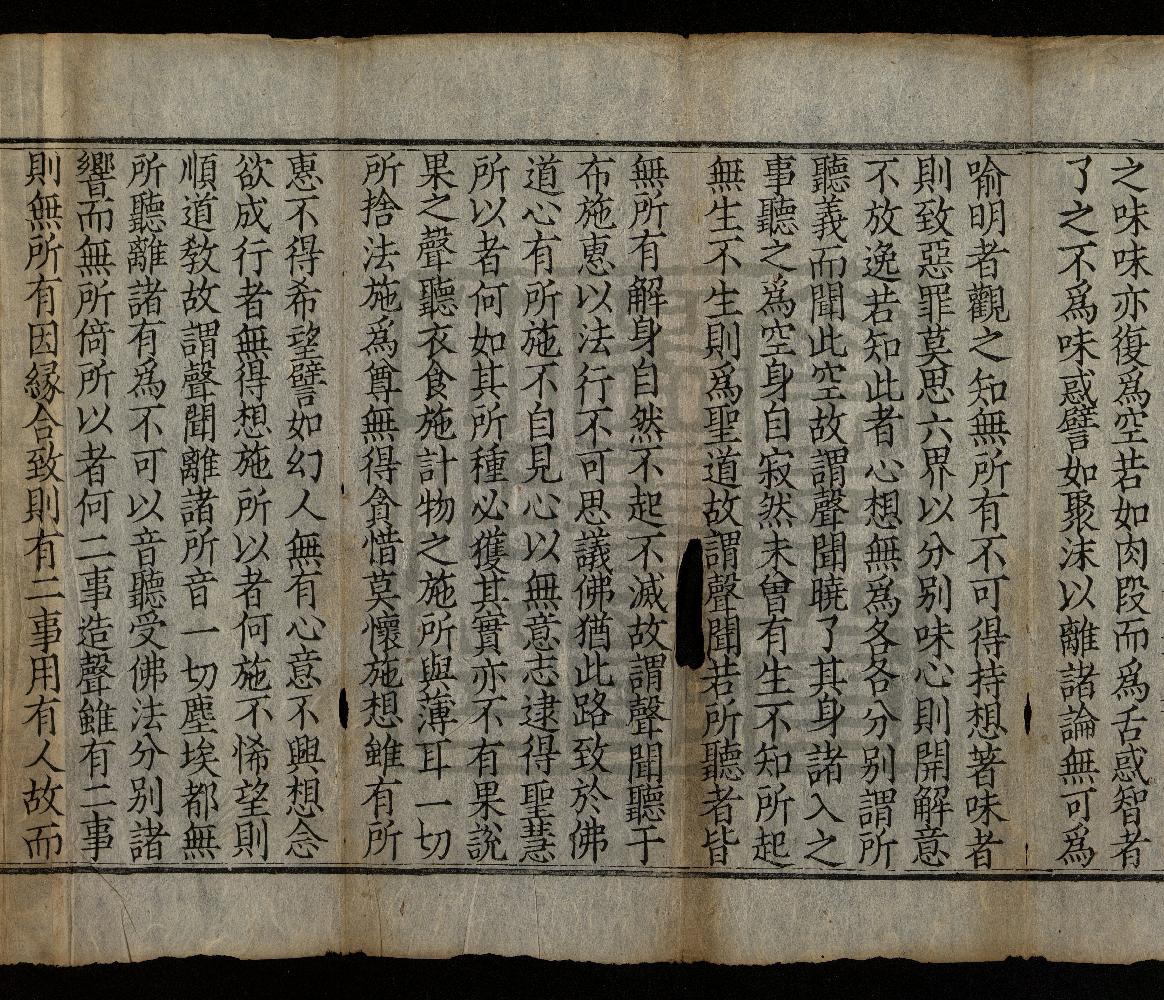 之味味亦復爲空若如肉段而爲舌惑智者
了之不爲味惑譬如聚沫以離諸論無可爲
喻明者觀之知無所有不可得持想著味者
則致惡罪莫思六界以分别味心則開解意
不放逸若知此者心想無爲各各分别謂所
聽義而聞此空故謂聲聞曉了其身諸入之
事聽之爲空身自寂然未曾有生不知所起
無生不生則爲聖道故謂聲聞若所聽者皆
無所有解身自然不起不滅故謂聲聞聽于
布施惠以法行不可思議佛猶此路致於佛
道心有所施不自見心以無意志逮得聖慧
所以者何如其所種必獲其實亦不有果説
果之聲聽衣食施計物之施所與薄耳一切
所捨法施爲尊無得貪惜莫懷施想雖有所
惠不得希望譬如幻人無有心意不興想念
欲成行者無得想施所以者何施不悕望則
順道教故謂聲聞離諸所音一切塵埃都無
所聽離諸有爲不可以音聽受佛法分别諸
響而無所倚所以者何二事造聲雖有二事
則無所有因緣合致則有二事用有人故而